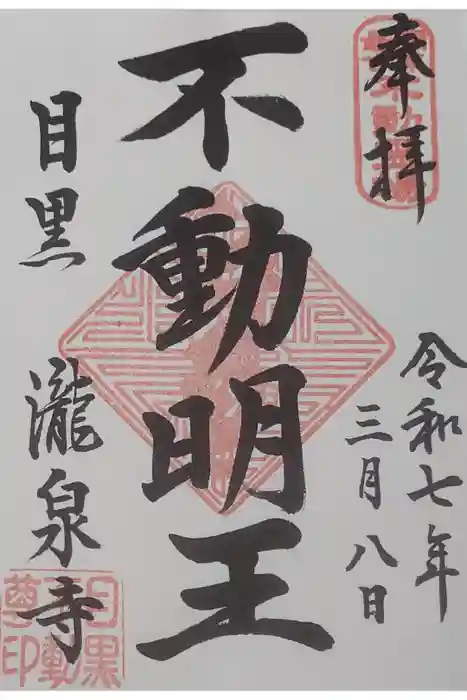 奉拝
令和七年
三月八日
不動明王
目黒
瀧泉寺
目黒
不動
尊印